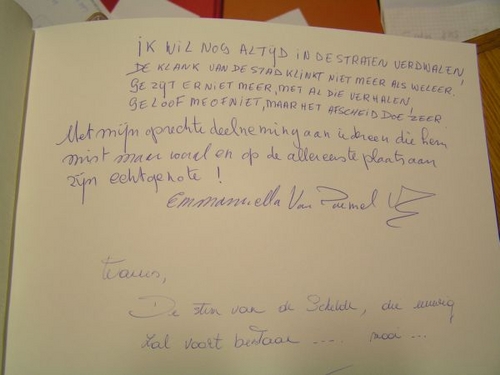 IK WIL NOG ALTIJD IN DE STRATEN VERDWALEN,
DE KLANK VAN DE STAD KLINKT NIET MEER ALS WELEER.
GE ZIJT ER NIET MEER, MET AL DIE VERHALEN,
GELOOF ME OF NIET, MAAR HET AFSCHEID DOE ZEER
Met mijn oprechte deelneming aan iedereen die hem
mist maar vooral en op de allereerste plaats aan
zijn echtgenote !
Emmanuella Van
De stem van de Schelde, die eeuwig
zal voort bestaan .... mooi ...